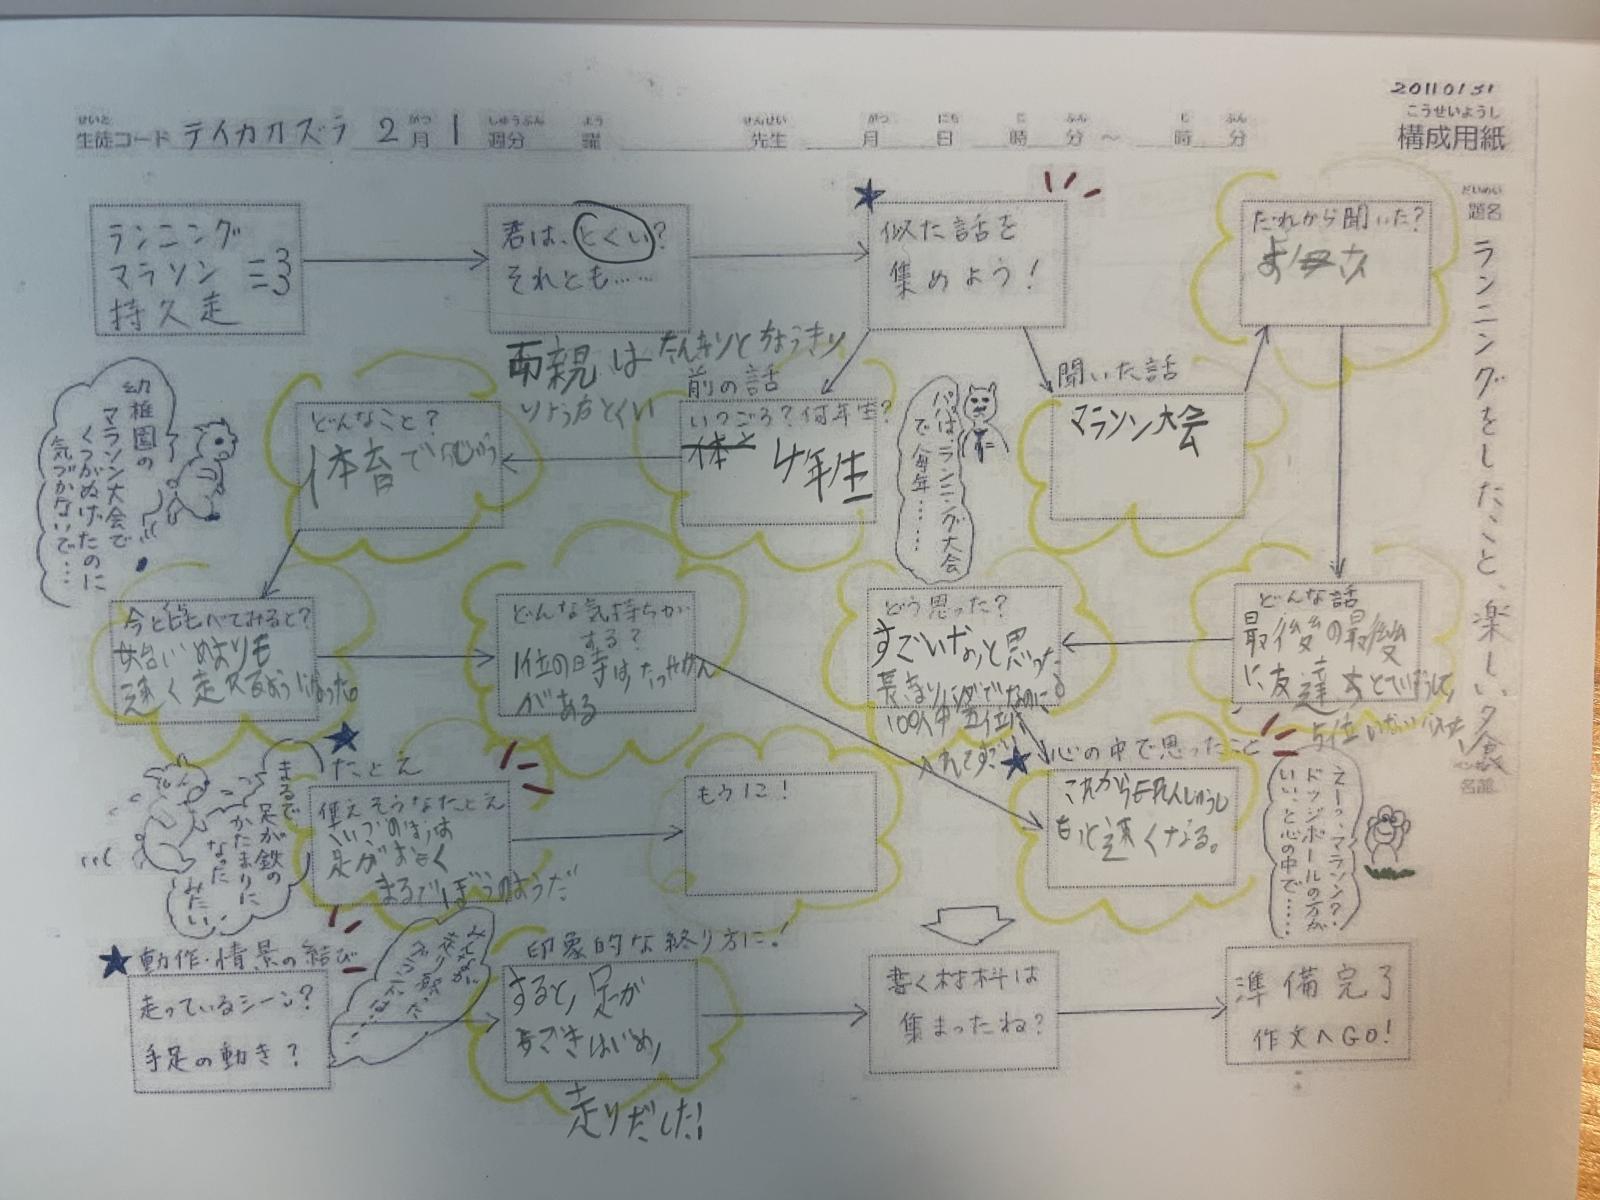 20110131
こうせいようし
構成用紙
せいと がつ しゅうぶん よう せんせい がつ にち じ ふん じ ふん
生徒コード テイカカズラ 2月 1 週分 曜 先生 月 日 時 分〜 時 分
だいめい
題名
ランニングをしたこと、楽しい夕食
ペンネーム
名前
ランニング
マラソン
持久走
君は、とくい?
それとも……
似た話を
集めよう!
だれから聞いた?
お母さん
両親は
たんきりとちょうきり
りょう方とくい
前の話
いつごろ?何年生?
4年生
聞いた話
マラソン大会
パパは、ランニング大会
で毎年……
どんなこと?
体育で
幼稚園の
マラソン大会で
くつがぬげたのに
気づかないで……
今と比べてみると?
始いめよりも
速く走れるようになった。
どんな気持ちが
する?
1位の時は、たっせいかん
がある
どう思った?
すごいなっと思った。
長きりにがてなのに
100人中五位に
入れてすごい
どんな話
最後の最後
に友達
5位
たとえ
使えそうなたとえ
足がおもく
まるでぼうのようだ
まるで
足が鉄の
かたまりに
なった
みたい
もう1こ!
心の中で思ったこと
これから
もっと速くなる。
えーっ、マラソン?
ドッジボールの方が
いい、と心の中で……
動作・情景の結び
走っているシーン?
手足の動き?
印象的な終り方に!
すると、足が
はじめ、
走りだした!
書く材料は
集まったね?
準備完了
作文へGO!